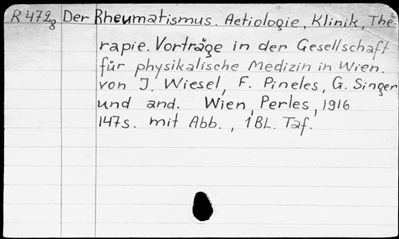 R 4798 Der Rheumatismus. Aetiologie, Klinik, The-
rapie. Vorträge in der Gesellschaft
für physikalische Medizin in Wien.
von J. Wiesel, F. Pineles, G. Singer
und and. Wien, Perles, 1916
147s. mit Abb., 1 BL. Taf.